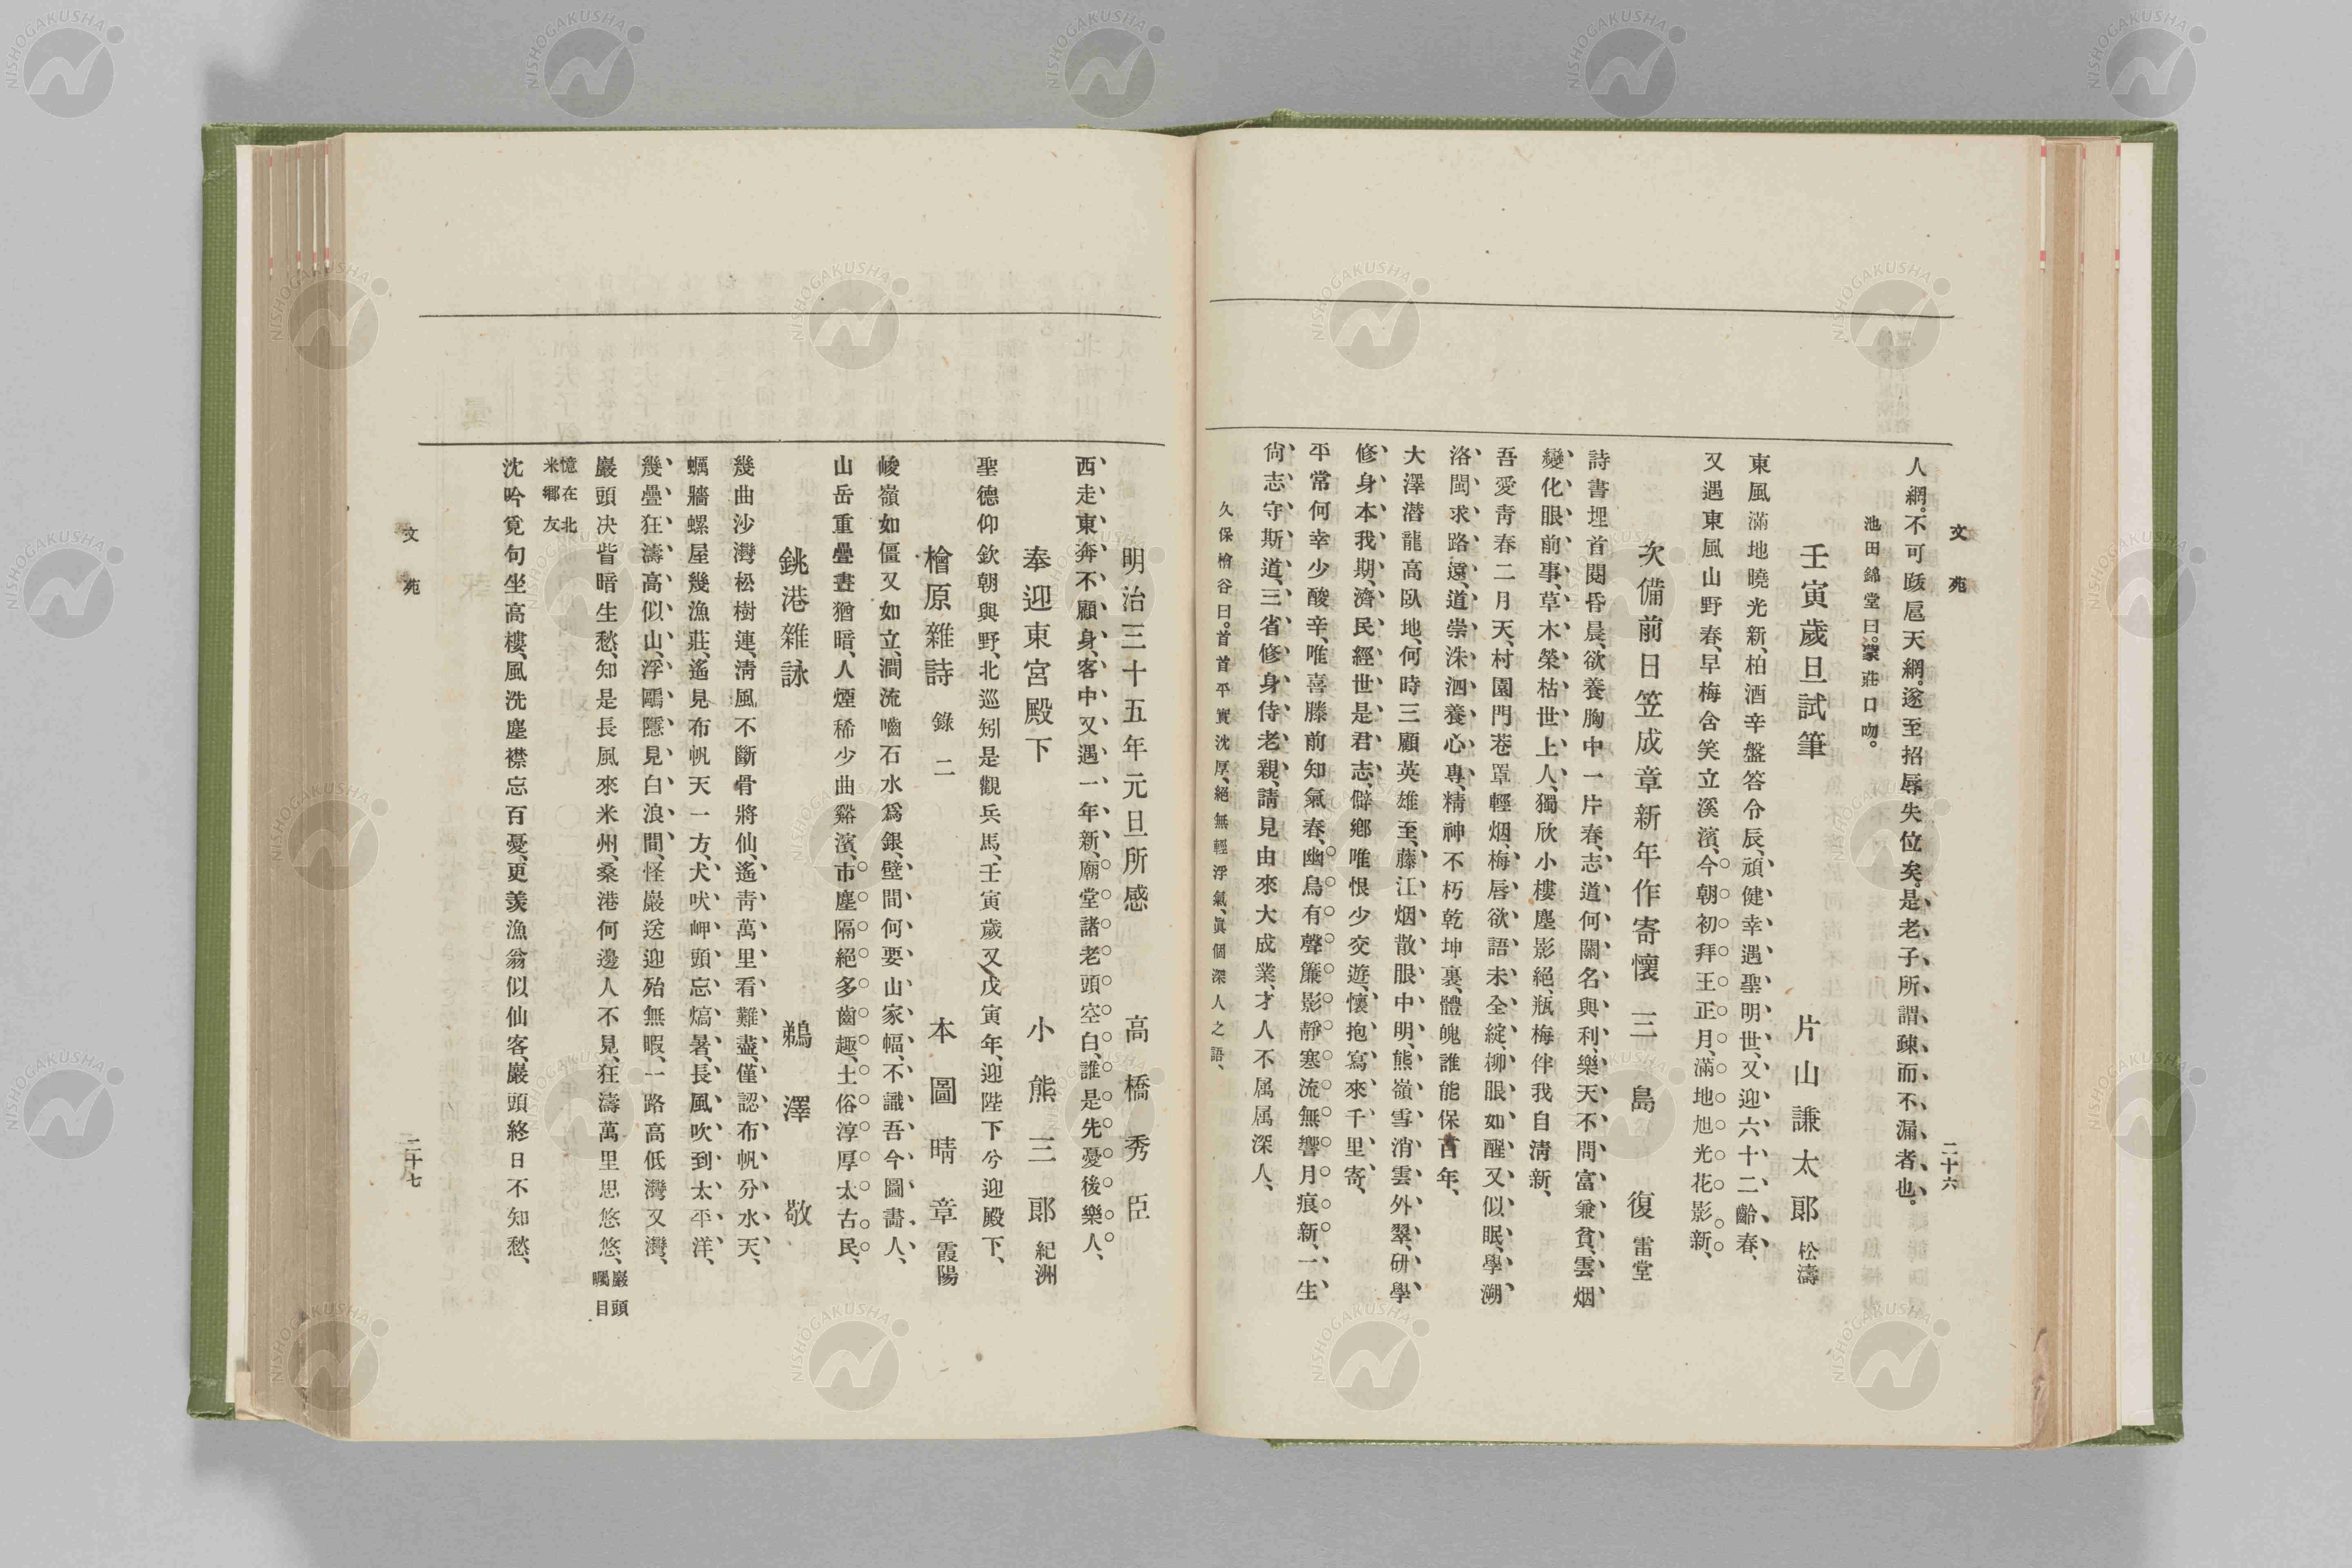 文苑
二十六
人網。不可䟦扈天網。遂至招辱失位矣。是老子所謂疎而不漏者也。
池田錦堂曰。蒙莊口吻。
壬寅歲旦試筆 片山謙太郎 松濤
東風滿地曉光新、柏酒辛盤答令辰、頑健幸遇聖明世、又迎六十二齡春、
又遇東風山野春、早梅含笑立溪濱、今朝初拜王正月、滿地旭光花影新、
次備前日笠成章新年作寄懷 三島復 雷堂
詩書埋首閱昏晨、欲養胸中一片春、志道何關名與利、樂天不問富兼貧、雲烟
變化眼前事、草木榮枯世上人、獨欣小樓塵影絕、瓶梅伴我自淸新、
吾愛靑春二月天、村園門巷罩輕烟、梅唇欲語未全綻、柳眼如醒又似眠、學溯
洛閩求路遠、道崇洙泗養心專、精神不朽乾坤裏、體魄誰能保百年、
大澤潜龍高臥地、何時三顧英雄至、藤江烟散眼中明、熊嶺雪消雲外翠、硏學
修身本我期、濟民經世是君志、僻鄕唯恨少交遊、懷抱寫來千里寄、
平常何幸少酸辛、唯喜滕前知氣春、幽鳥有聲簾影靜、寒流無響月痕新、一生
尙志守斯道、三省修身侍老親、請見由來大成業、才人不属属深人、
久保檜谷曰。首首平實沈厚、絕無輕浮氣、眞個深人之語、
明治三十五年元旦所感 高橋秀臣
西走東奔不顧身、客中又遇一年新、廟堂諸老頭空白、誰是先憂後樂人、
奉迎東宮殿下 小熊三郞 紀洲
聖德仰欽朝與野、北巡矧是觀兵馬、壬寅歲又戊寅年、迎陛下兮迎殿下、
檜原雜詩 錄二 本圖晴章 霞陽
峻嶺如僵又如立、澗流嚙石水爲銀、壁間何要山家幅、不識吾今圖畵人、
山岳重疊晝猶暗、人煙稀少曲谿濱、市塵隔絕多齒趣、土俗淳厚太古民、
銚港雜詠 鵜澤敬
幾曲沙灣松樹連、淸風不斷骨將仙、遙靑萬里看難盡、僅認布帆分水天、
蠣牆螺屋幾漁莊、遙見布帆天一方、犬吠岬頭忘熇暑、長風吹到太平洋、
幾疊狂濤高似山、浮鷗隱見白浪間、怪巖送迎殆無暇、一路高低灣又灣、
巖頭决眥暗生愁、知是長風來米州、桑港何邊人不見、狂濤萬里思悠悠、巖頭矚目
憶在北米鄕友
沈吟覓句坐高樓、風洗塵襟忘百憂、更羨漁翁似仙客、巖頭終日不知愁、
文苑
二十七
NISHOGAKUSHA